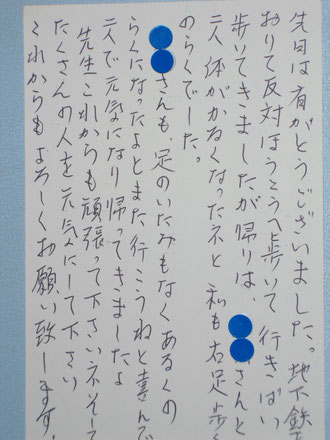 先日は有がとうございました。地下鉄を
おりて反対ほうこうへ歩いて行きばい
歩いてきましたが帰りは、さんと
二人体がかるくなったネと私も右足歩く
のらくでした。
さんも、足のいたみもなくあるくの
らくになったよとまた行こうねと喜んで
二人で元気になり帰ってきましたよ
先生これからも頑張って下さいネそして
たくさんの人を元気にして下さい
これからもよろしくお願い致します。